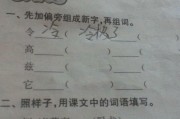 一、先加偏旁组成新字,再组词。
令(冷) 冷极了
高( )____( )____
兹( )____( )____
它( )____( )____
二、照样子,用课文中的词语填写。